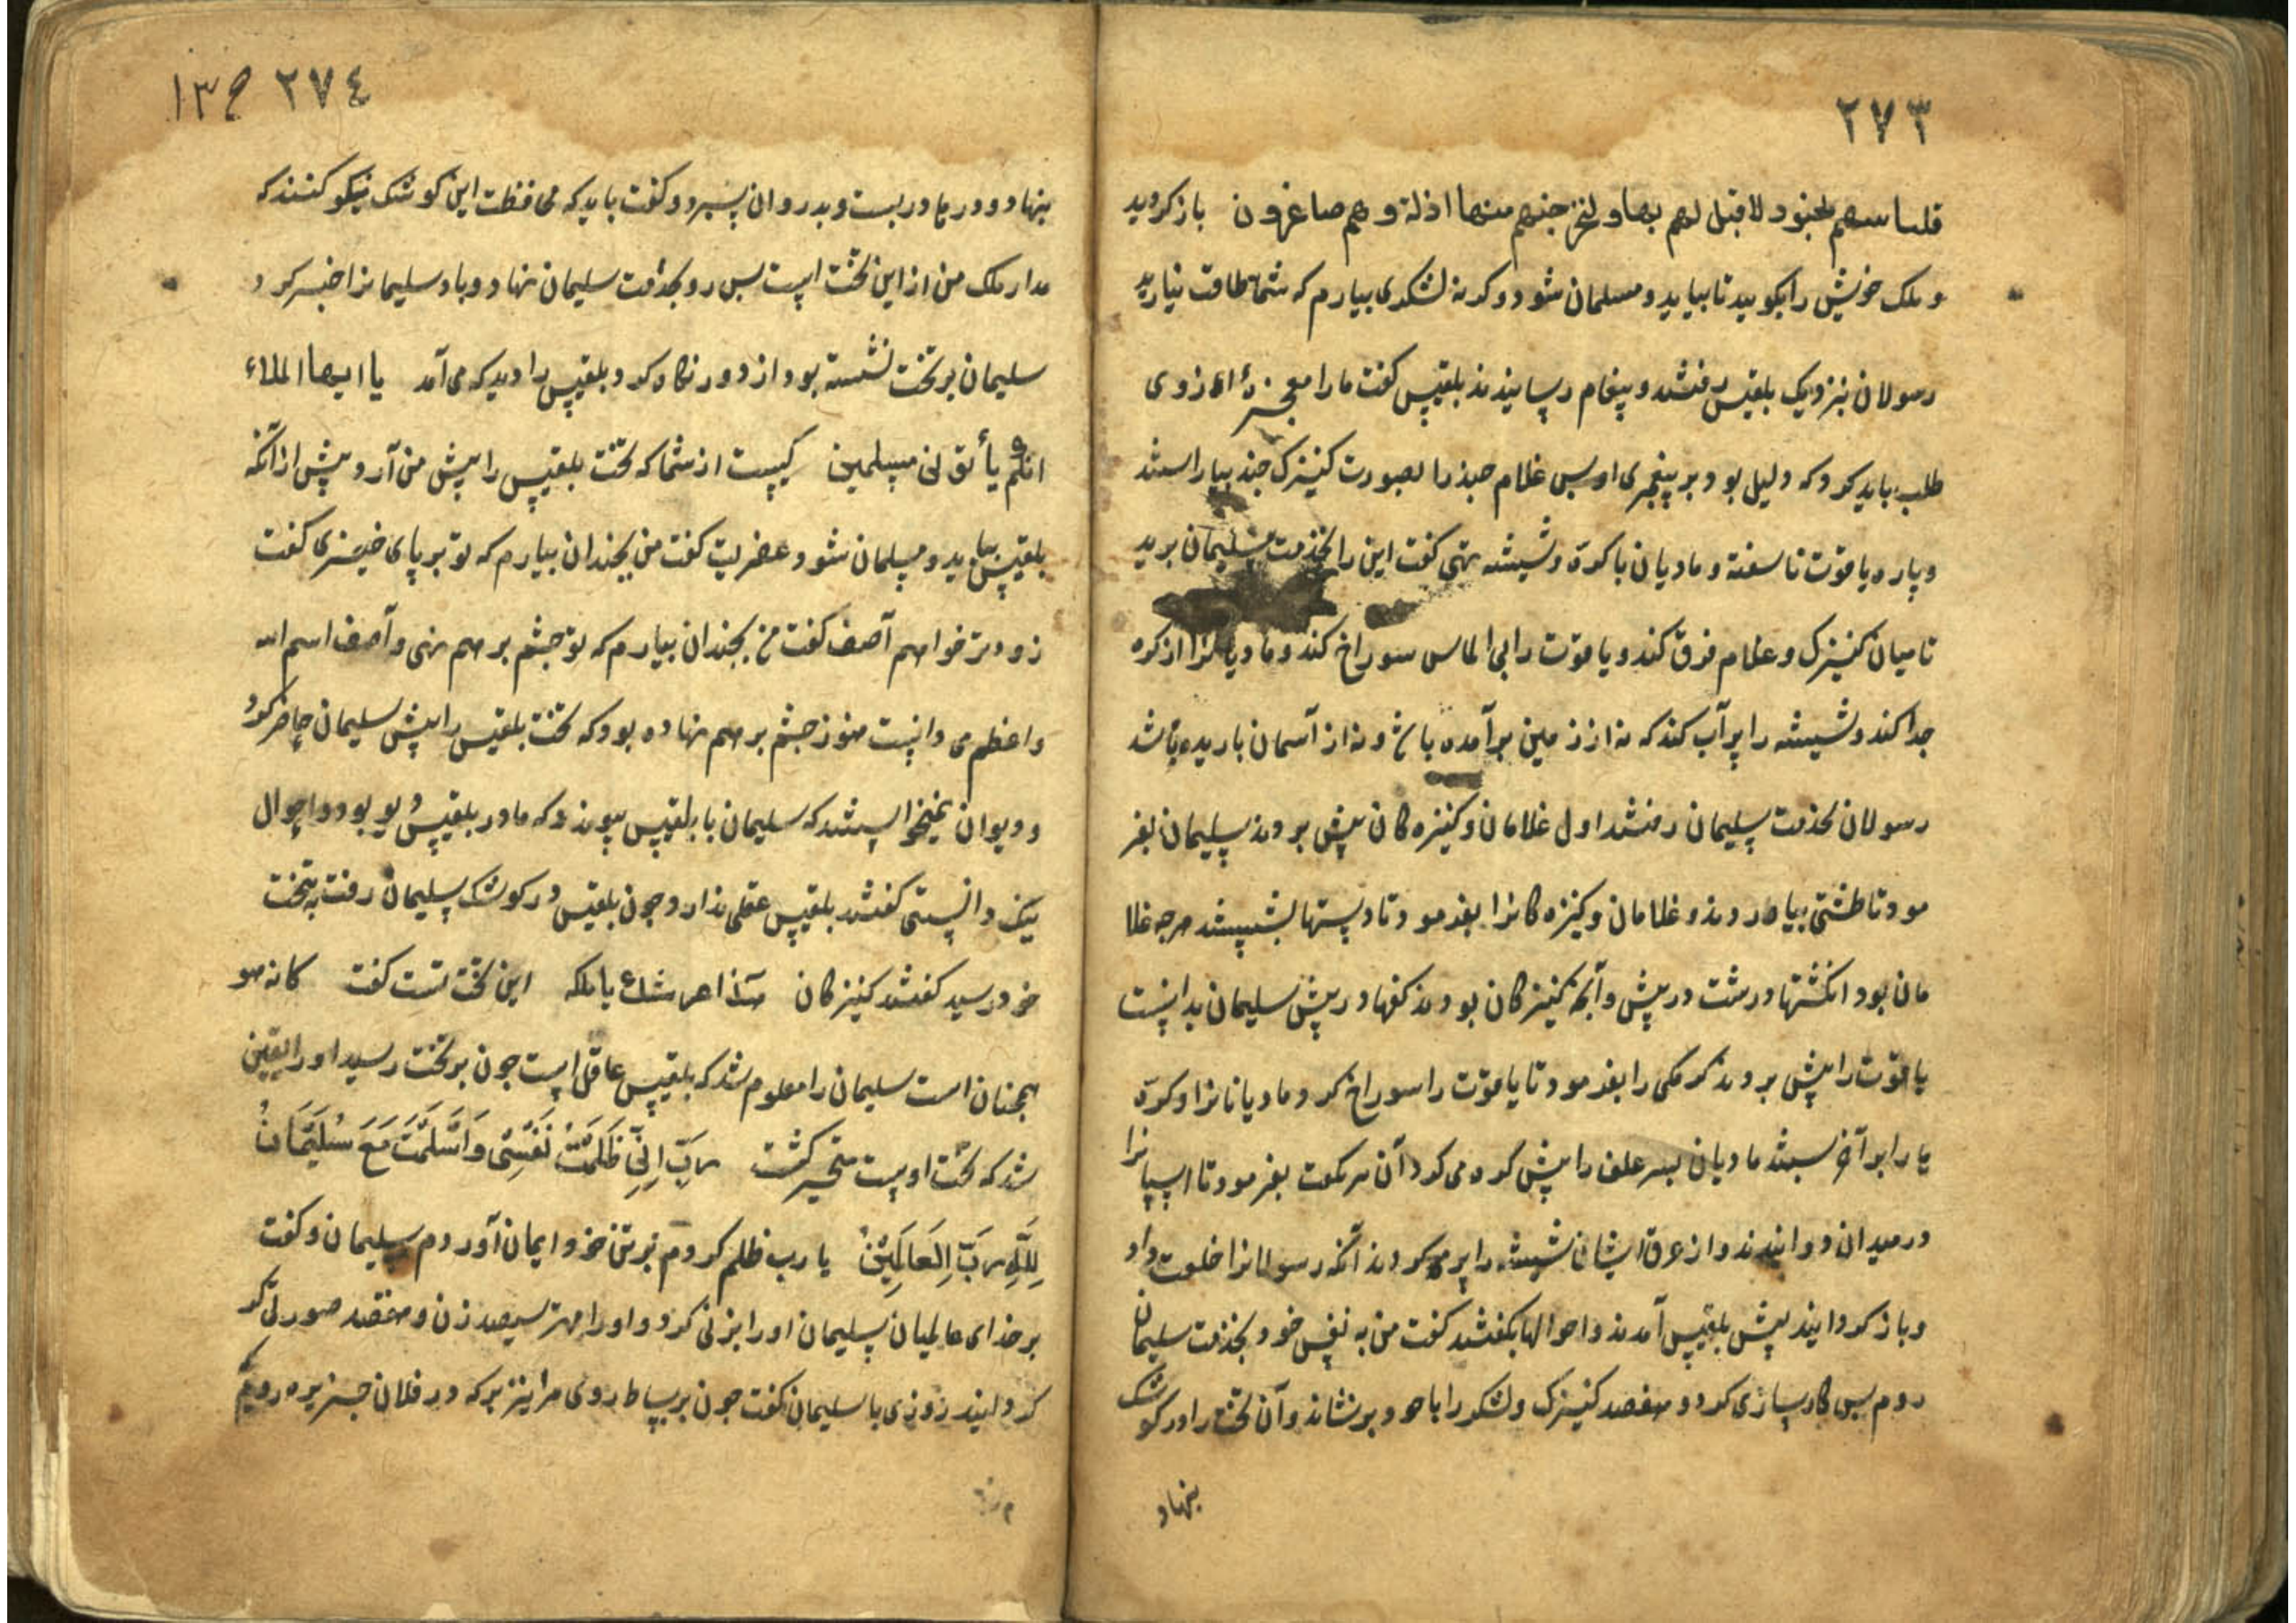 ٢٧٣
فلنأتینهم بجنود لا قبل لهم بها ولنخرجنهم منها اذلة وهم صاغرون باز کردید
و ملک خویش را بکویید تا بیاید و مسلمان شود و کرنه لشکری بیارم که شما طاقت نیارید
رسولان بنزدیک بلقیس رفتند و پیغام رسانیدند بلقیس کفت ما را معجزهٔ از وی
طلب باید کرد که دلیل بود بر پیغمبری او بس غلام جند را بصورت کنیزک جند بیاراستند
و پاره یاقوت ناسفته و مادیان با کرّه و شیشه تهی کفت این را بخدمت سلیمان برید
تا میان کنیزک و غلام فرق کند و یاقوت را بی الماس سوراخ کند و مادیانرا از کره
جدا کند و شیشه را پر آب کند که نه از زمین برآمده باشد و نه از آسمان باریده باشد
رسولان بخدمت سلیمان رفتند اول غلامان و کنیزه کان پیش بردند سلیمان بفر
مود تا طشتی بیاوردند و غلامان و کنیزه کانرا بفرمود تا دستها بشستند هرجه غلا
مان بود انکشتها درشت در پیش و آنجه کنیزکان بودند کفها در پیش سلیمان بدانست
یاقوت را پیش بردند کرمکی را بفرمود تا یاقوت را سوراخ کرد و مادیانانرا و کرّه
ها را بر آخر بستند مادیان بسر علف را پیش کره می کرد آن مرکوت بفرمود تا اسپانرا
در میدان دوانیدند و از عرق ایشان شیشه را پر کردند آنکه رسولانرا خلعت داد
و باز کردانید پیش بلقیس آمدند و احوالها بکفتند کفت من به نفس خود بخدمت سلیمان
روم بس کارسازی کرد و هفصد کنیزک و لشکر را با خود برنشاند و آن تخت را در کوشک
بنهاد
٢٧٤ ج ١٣
بنهاد و درها دربست و بدروان سپرد و کفت باید که محافظت این کوشک نیکو کنند که
مدار ملک من از این تخت است بس رو بخدمت سلیمان نهاد و باد سلیمانرا خبر کرد
سلیمان بر تخت نشسته بود از دور نکاه کرد و بلقیس را دید که می آمد یا ایها الملاء
ایّکم یأتونی مسلمین کیست از شما که تخت بلقیس را پیش من آرد پیش از آنکه
بلقیس بیاید و مسلمان شود عفریت کفت من بجندان بیارم که تو بر پای خیزی کفت
زودتر خواهم آصف کفت من بجندان بیارم که تو جشم بر هم نهی و آصف اسم الله
واعظم می دانست هنوز جشم بر هم نهاده بود که تخت بلقیس را پیش سلیمان حاضر کرد
و دیوان نمیخواستند که سلیمان با بلقیس پیوندد که مادر بلقیس دیو بود و احوال
نیک دانستی کفتند بلقیس عقلی ندارد و جون بلقیس در کوشک سلیمان رفت به تخت
خود رسید کفتند کنیزکان هذا عرشک یا ملکه این تخت تست کفت کانه هو
همجنان است سلیمان را معلوم شد که بلقیس عاقل است جون بر تخت رسید او را یقین
شد که تخت اوست متحیر کشت رَبِّ اِنِّی ظَلَمْتُ نَفْسِی وَاَسْلَمْتُ مَعَ سُلَیْمَانَ
لِلّٰهِ رَبِّ الْعَالَمِیْنَ یا رب ظلم کردم بر تن خود و ایمان آوردم بسلیمان و کفت
بر خدای عالمیان سلیمان او را بزنی کرد و او را مهتر سیصد زن و هفصد
کردانید روزی با سلیمان کفت جون بر بساط روی مرا نیز بر که در فلان جزیره رویم